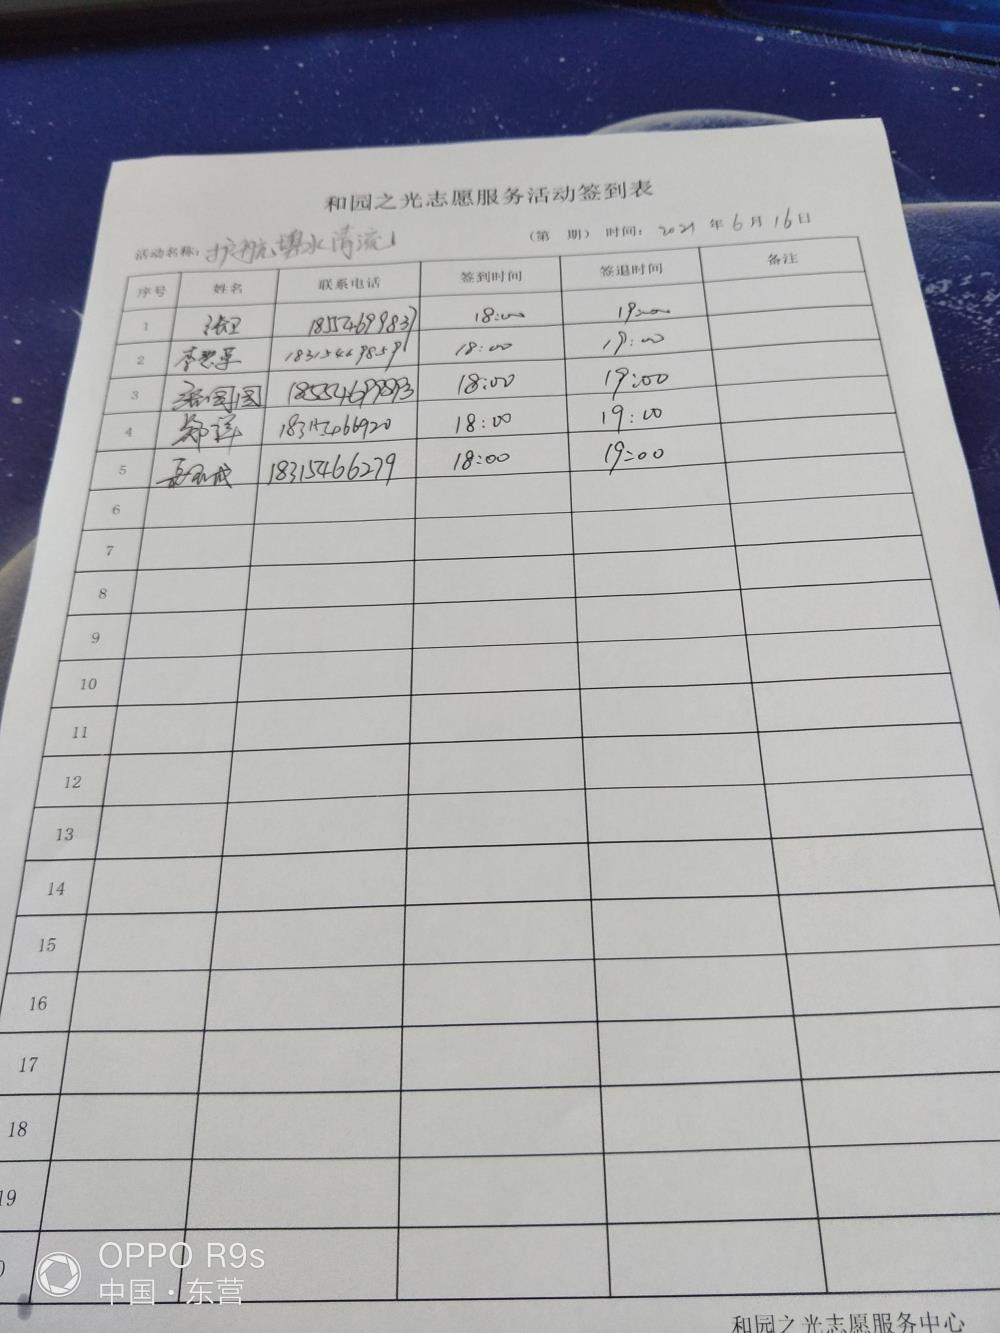 和园之光志愿服务活动签到表
活动名称： 护航碧水清流 （第 期） 时间： 2021 年 6 月 16 日
序号 姓名 联系电话 签到时间 签退时间 备注
1 张卫 18554699837 18:00 19:00
2 18315469859 18:00 19:00
3 18554699893 18:00 19:00
4 郑祥 18315466920 18:00 19:00
5 18315466279 18:00 19:00
6
7
8
9
10
11
12
13
14
15
16
17
18
19
OPPO R9s
中国·东营
和园之光志愿服务中心